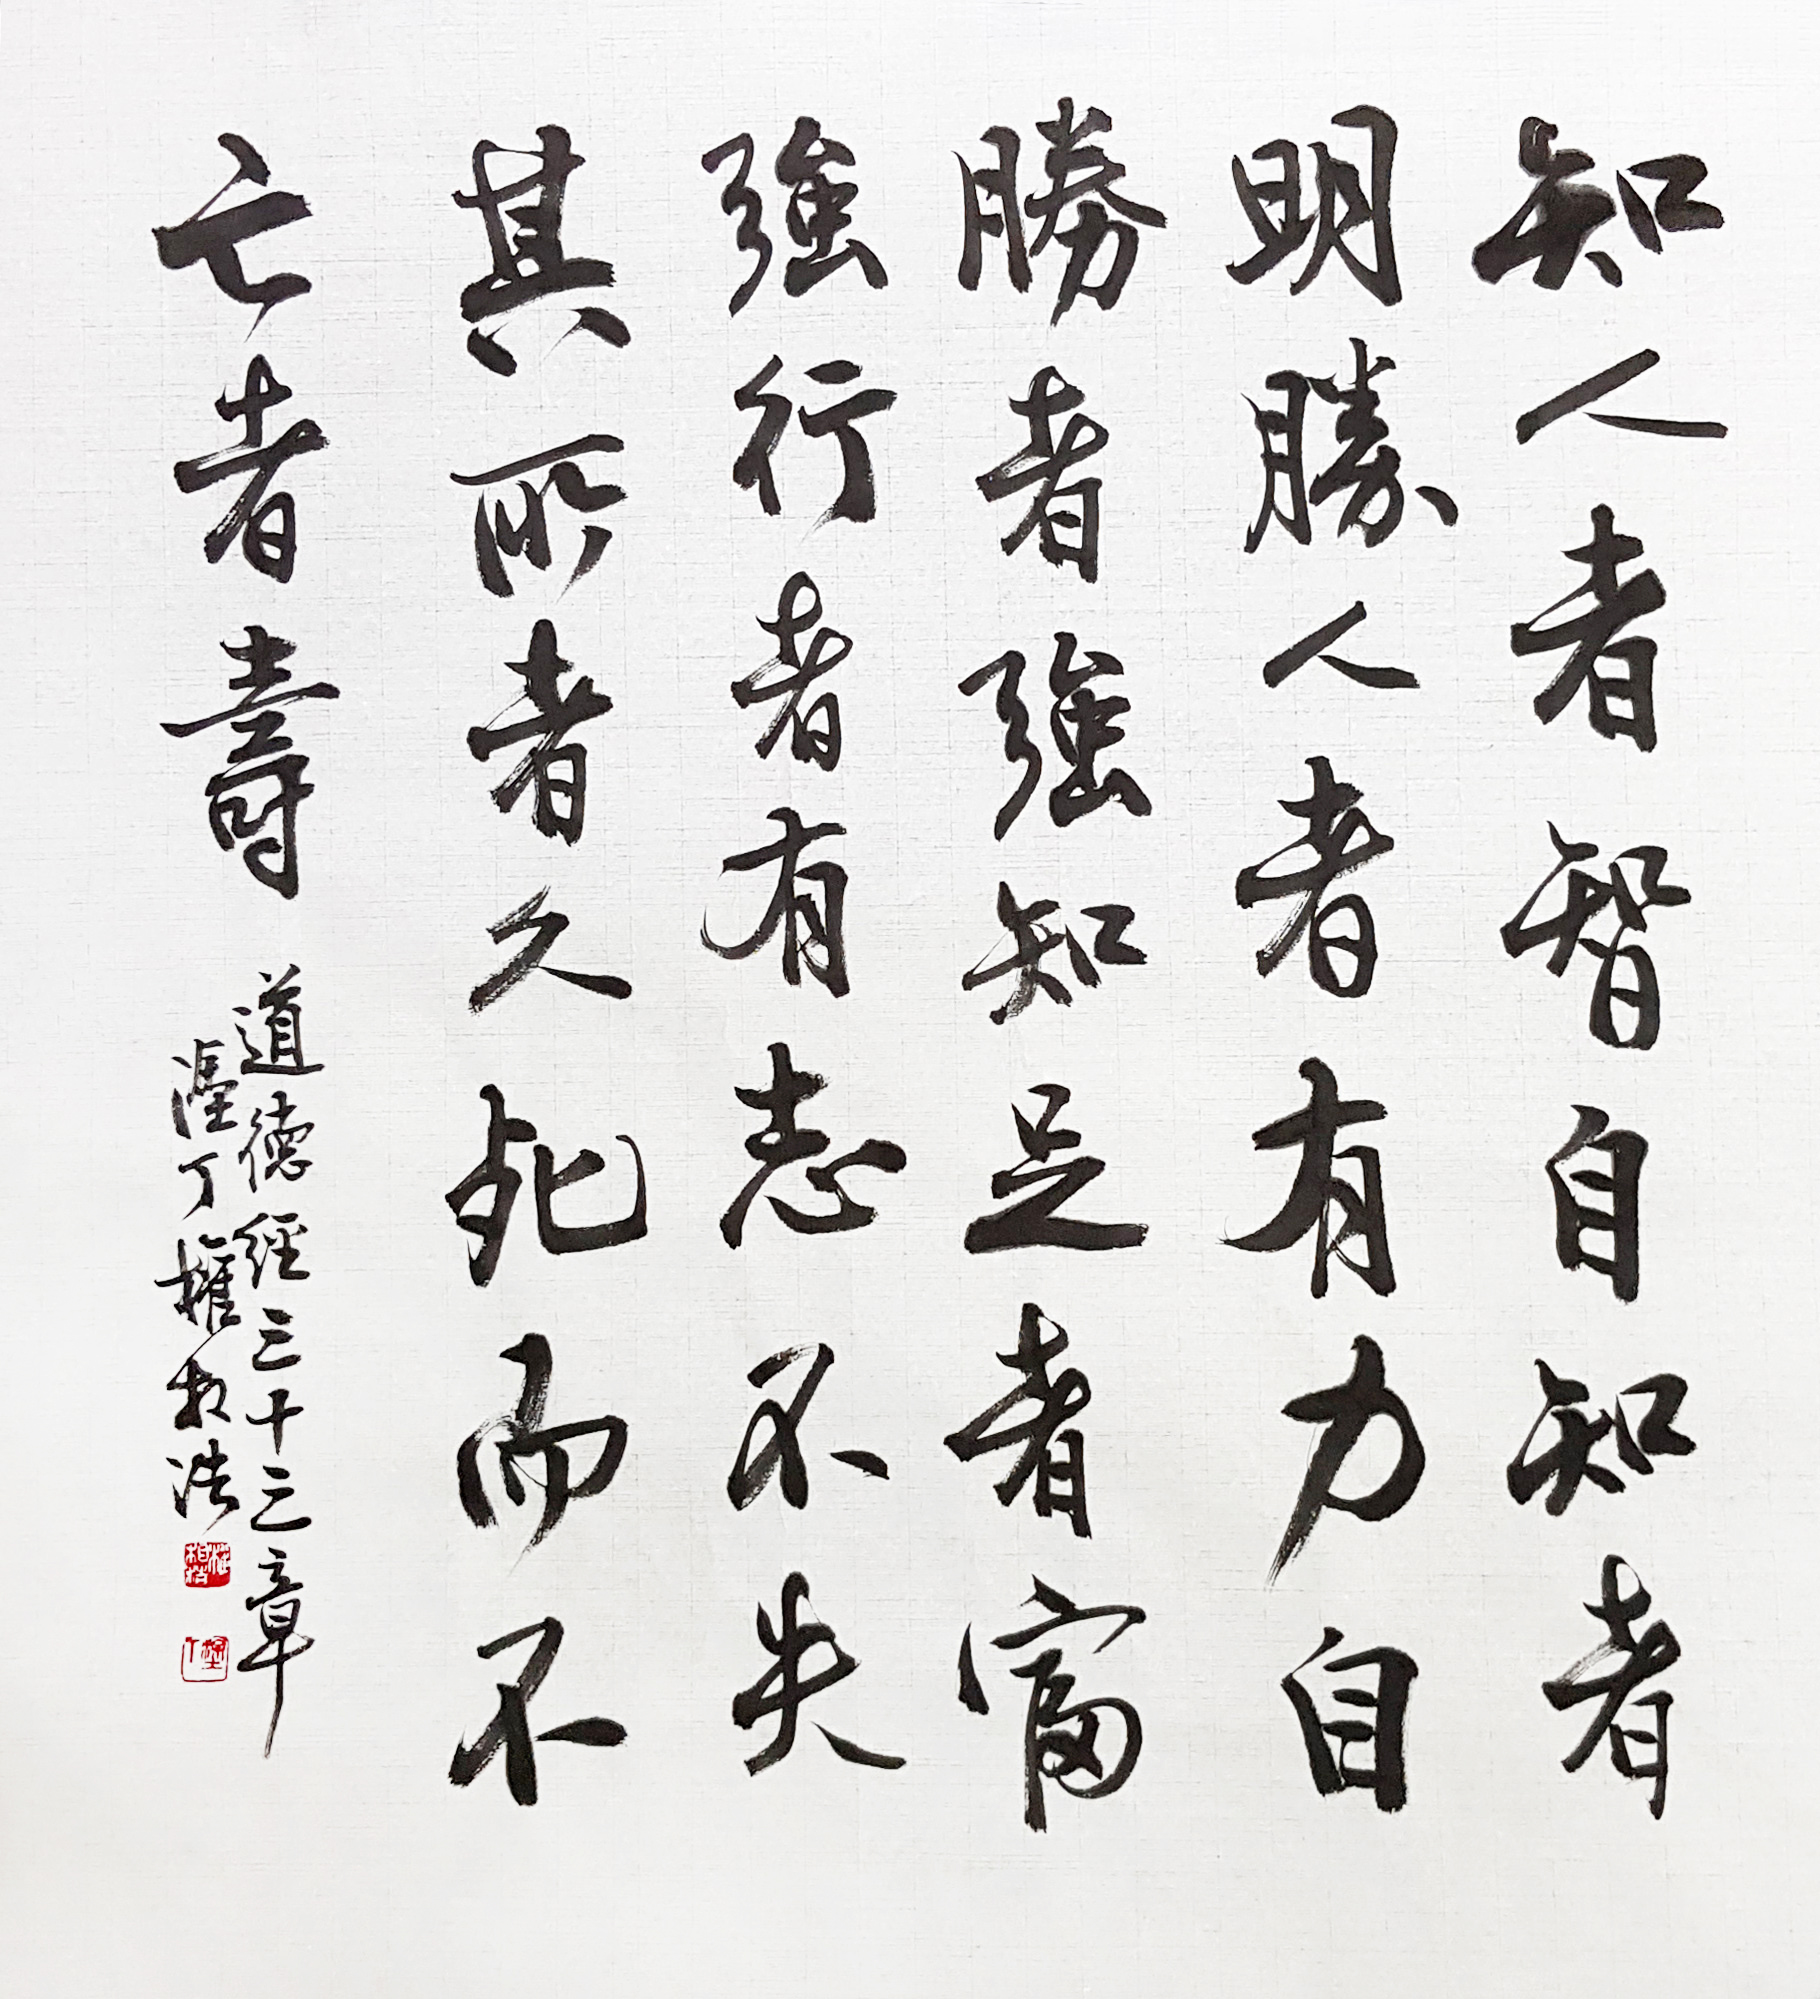 知人者智自知者
明勝人者有力自
勝者強知足者富
強行者有志不失
其所者久死而不
亡者壽
道德經三十三章
丁權相浩